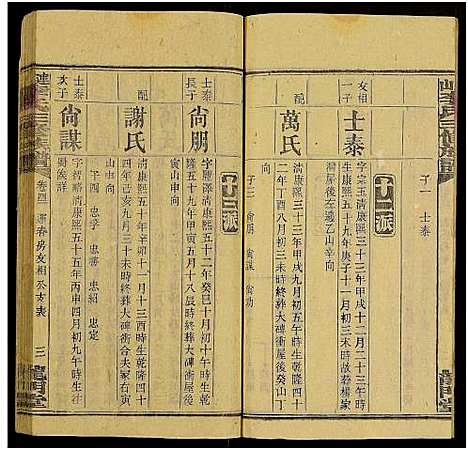 子一 士泰
女相
一子
士泰
字宗玉清康熙三十三年甲戌十二月二十三年時
生康熙五十九年庚子十一月初三未時終葬楊家
衝屋後左邊乙山辛向
配
萬氏
清康熙三十三年甲戌九月初五未時生乾隆二十
二年丁酉八月初三未時終葬大碑衝屋後癸山丁
向
子三 尙朋 尙謀 尙勛
十二派
士泰
長子
尙朋
字 清康熙五十二年癸巳十月初十午時生乾
隆五十九年甲寅五月十八辰時終葬大碑衝屋後
寅山申向
配
謝氏
清康熙五十年辛卯十一月十三酉時生乾隆四十
四年己亥九月三十未時終葬大碑衝合夫冢右寅
山申向
子四 忠孚 忠書 忠紹 忠定
士泰
次子
尙謀
字 清康熙五十五年丙申四月初九午時生
卷四 房友相公支表
三
龍門堂
龍門堂